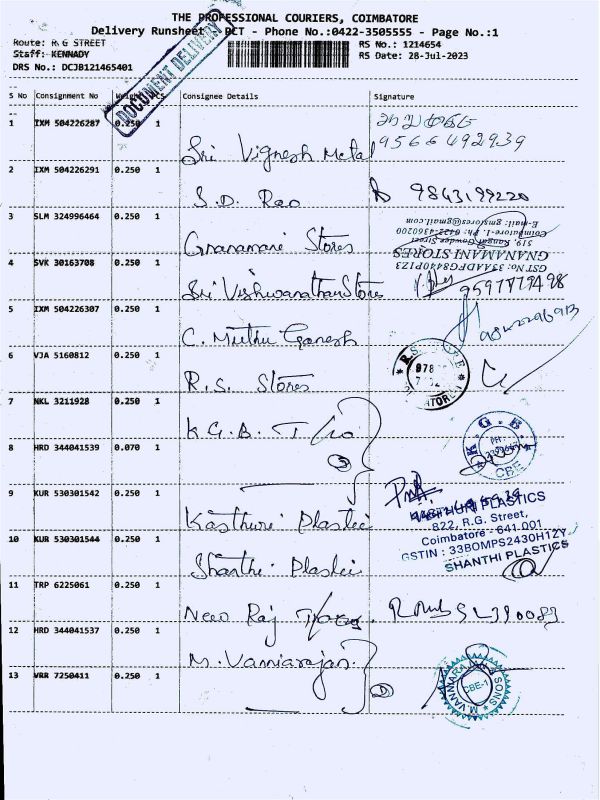 THE PROFESSIONAL COURIERS, COIMBATORE
Delivery Runsheet PCT - Phone No.:0422-3505555 - Page No.:1
Route: R G STREET
RS No.: 1214654
Staff: KENNADY
RS Date: 28-Jul-2023
DRS No.: DCJB121465401
DOCUMENT DELIVERY
S No Consignment No Weight PCS Consignee Details Signature
1 IXM 504226287 0.250 1 Sri Vignesh Metal
9566492939
2 IXM 504226291 0.250 1 S.D. Rao 9843199220
3 SLM 324996464 0.250 1 Gnanamani Stores
GNANAMANI STORES
519, Rangai Gowder Street
Coimbatore-1. Ph: 0422-4360200
E-mail: gmstores@gmail.com
4 SVK 30163708 0.250 1 Sri Vishwanathan Stores
5 IXM 504226307 0.250 1 C. Muthu Ganesh
6 VJA 5160812 0.250 1 R.S. Stores
7 NKL 3211928 0.250 1 K.G.B. T/co
K.G.B
PH
CBE
8 HRD 344041539 0.070 1
9 KUR 530301542 0.250 1 Kasthuri Plastic
PLASTICS
822, R.G. Street,
Coimbatore - 641 001
GSTIN : 33BOMPS2430H1ZY
10 KUR 530301544 0.250 1 Shanthi Plastic
SHANTHI PLASTICS
11 TRP 6225061 0.250 1 New Raj
12 HRD 344041537 0.250 1 M. Vanniarajan
13 VRR 7250411 0.250 1
CBE-1